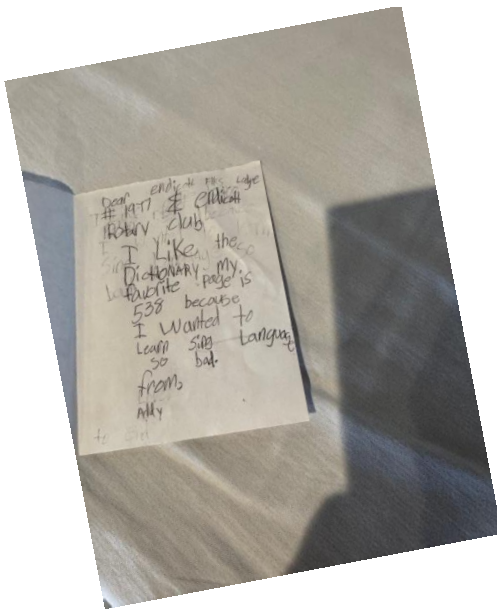 Dear endicott Elks Lodge
# 1977 & endicott
Rotary club,
I Like the
DictioNARY my
favorite Page is
538 because
I wanted to
Learn Sing Language
so bad.
from,
Addy